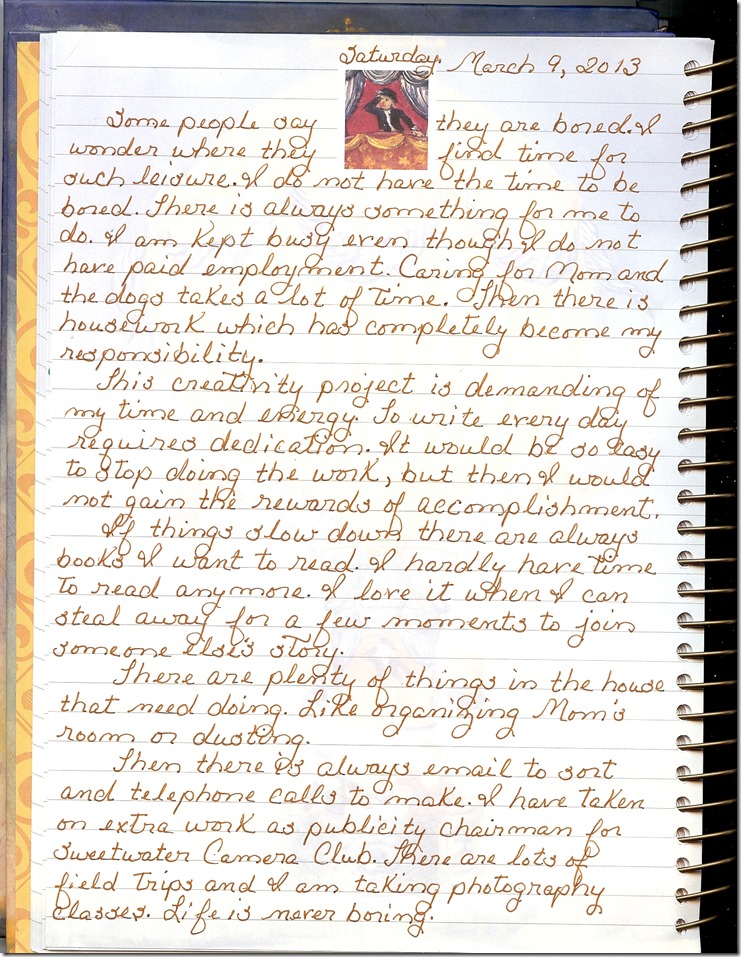 Saturday. March 9, 2013
Some people say they are bored. I
wonder where they find time for
such leisure. I do not have the time to be
bored. There is always something for me to
do. I am kept busy even though I do not
have paid employment. Caring for Mom and
the dogs takes a lot of time. Then there is
housework which has completely become my
responsibility.
This creativity project is demanding of
my time and energy. To write every day
requires dedication. It would be so easy
to stop doing the work, but then I would
not gain the rewards of accomplishment.
If things slow down there are always
books I want to read. I hardly have time
to read anymore. I love it when I can
steal away for a few moments to join
someone else's story.
There are plenty of things in the house
that need doing. Like organizing Mom's
room or dusting.
Then there is always email to sort
and telephone calls to make. I have taken
on extra work as publicity chairman for
Sweetwater Camera Club. There are lots of
field trips and I am taking photography
classes. Life is never boring.